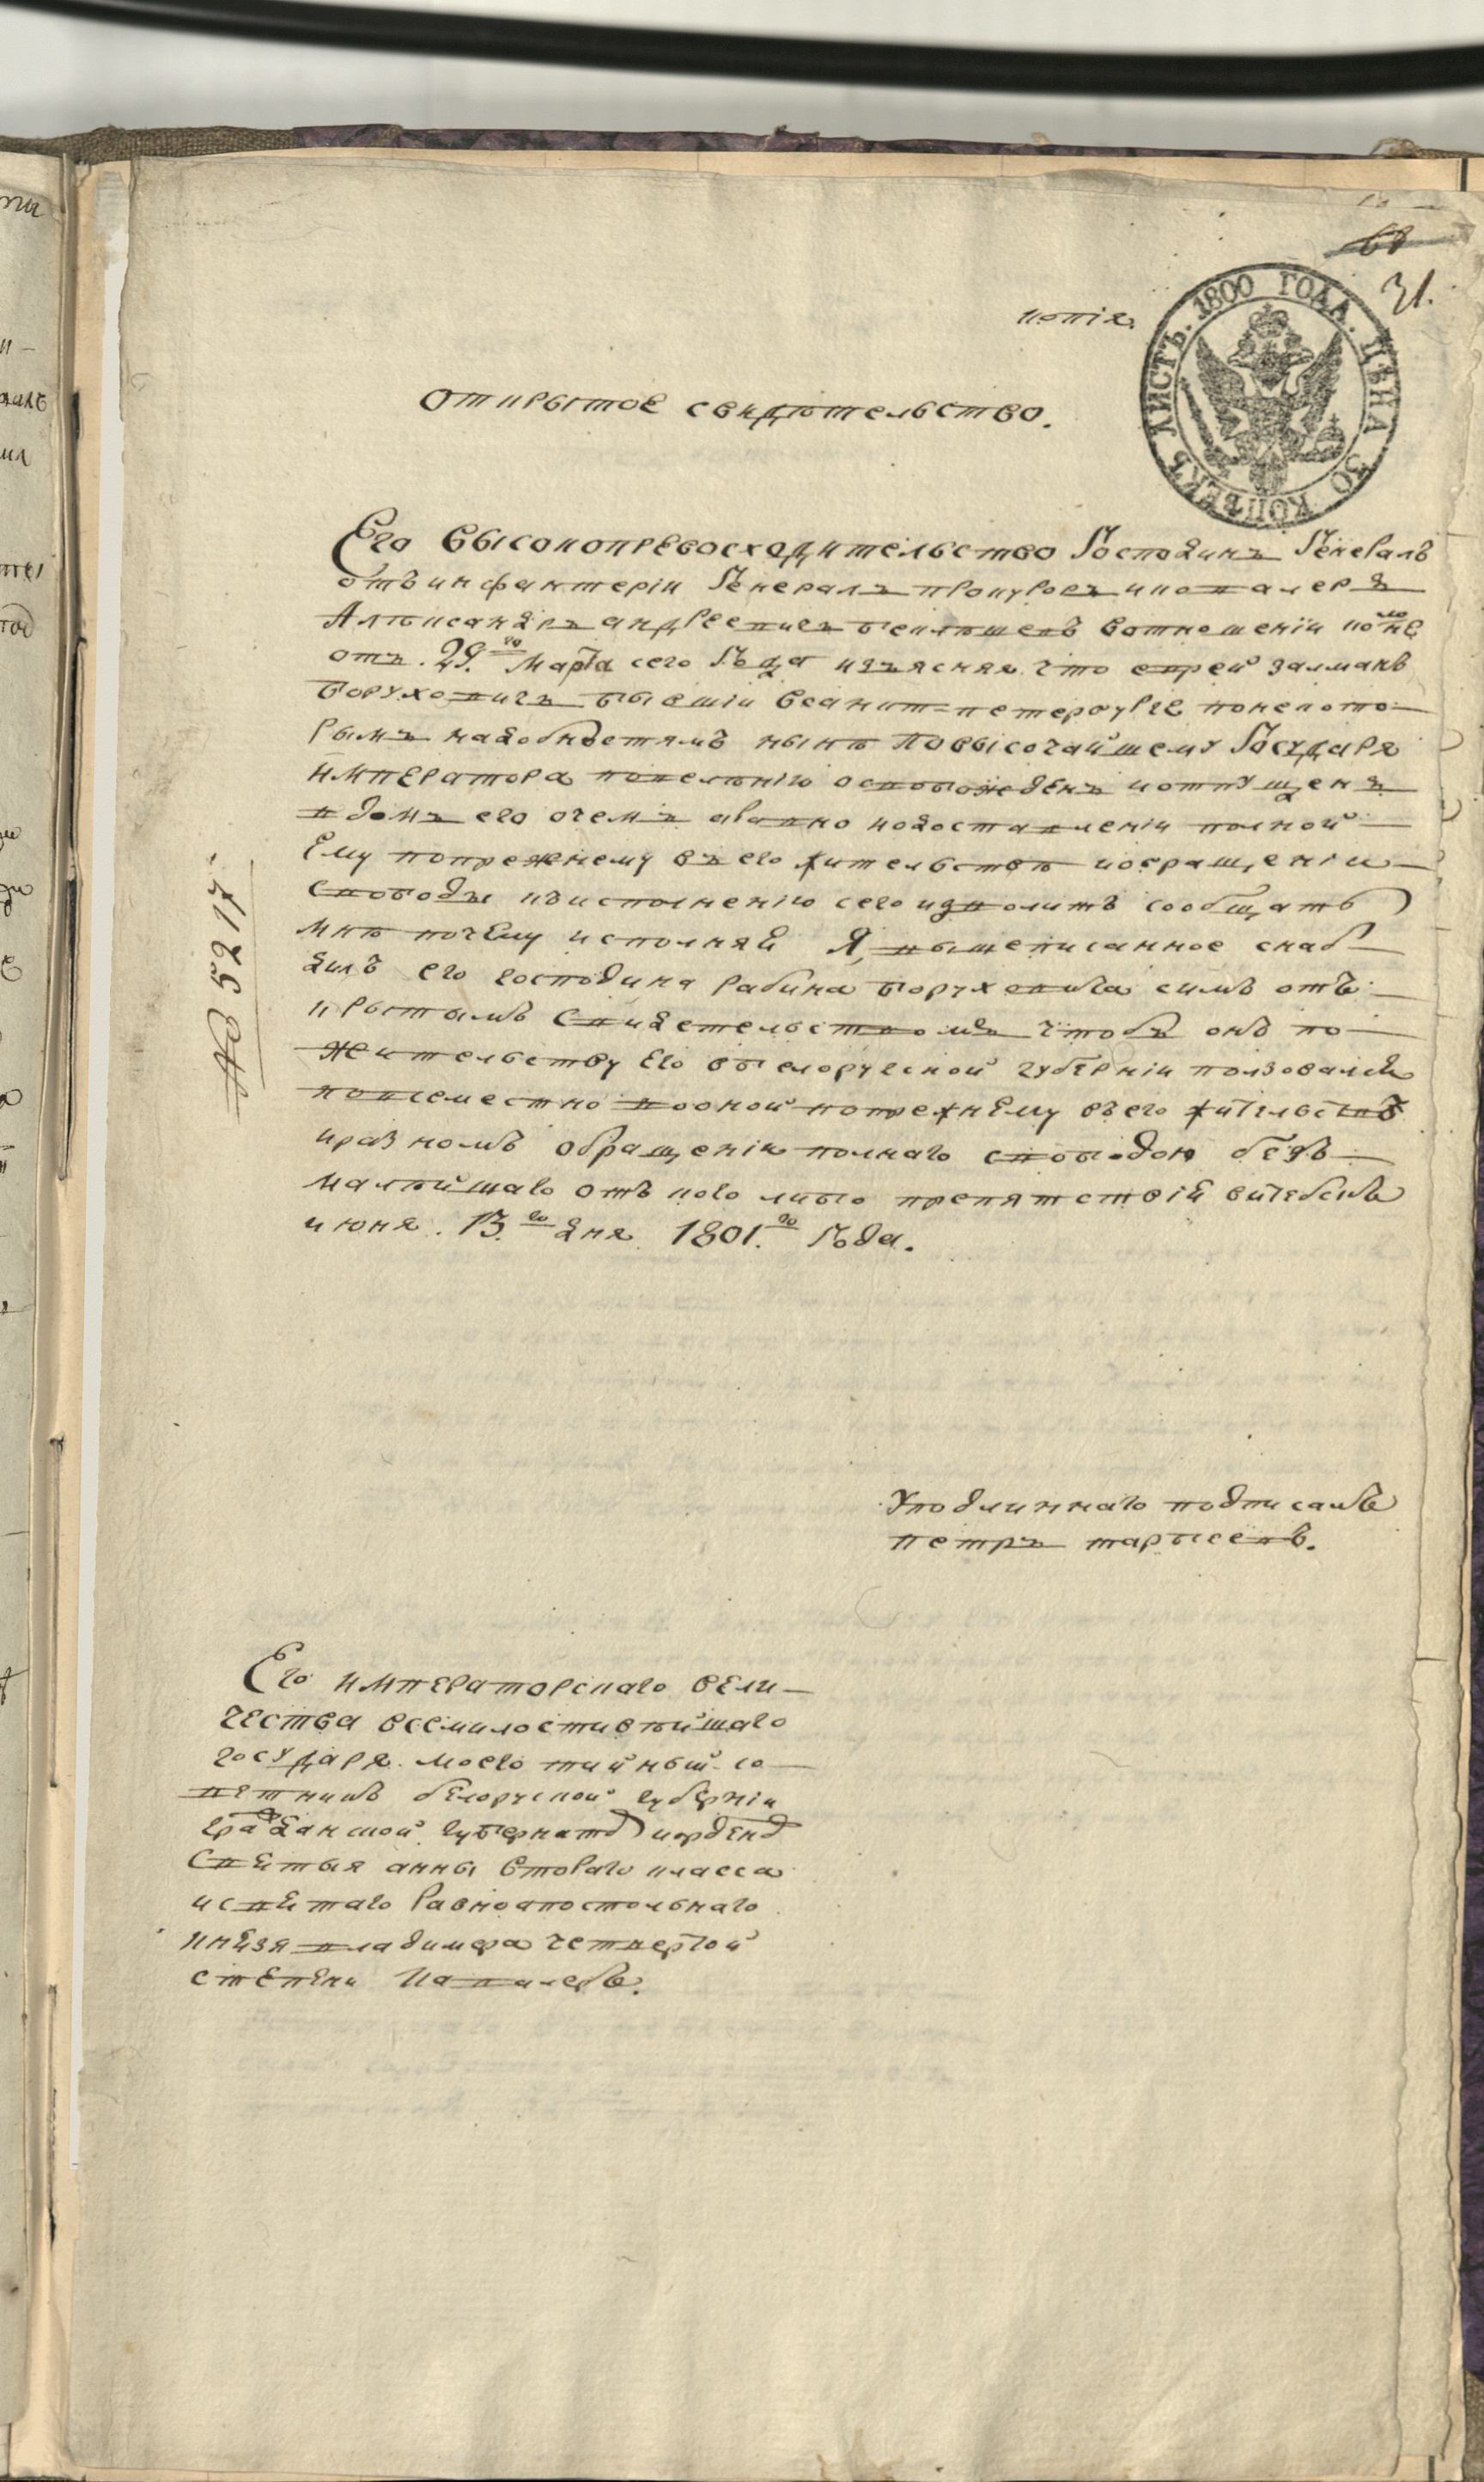 68
31.
копія
ЛИСТЪ. 1800 ГОДА. ЦѢНА 30 КОПѢЕКЪ
Открытое свидѣтельство.
Его высокопревосходительство Господинъ Генералъ
отъ инфантеріи Генералъ прокуроръ и кавалеръ
Алѣксандръ андреевичъ беклѣшевъ вотношеніи комне
отъ. 29.го Марта сего Года изъясняя что еврей залманъ
Боруховичъ бывшіи всанктъ=петербурге понекото-
рымъ надобностямъ нынѣ повысочайшему Государя
императора повелѣнію освобожденъ иотпущенъ
вдомъ его очемъ аравно идоставленіи полной
Ему попрежнему въ его жительствѣ иобращеніи
свободы изисполненію сего изволитъ сообщать
мнѣ почему исполняя Я, вышеписанное снаб-
дилъ его господина рабина боруховича симъ от-
крытымъ Свидетельствомъ чтобъ онъ по
жительству Его вбелоруской губерніи ползовался
повсеместно попрежнему въего жительствѣ
иразномъ обращеніи полнаго свободою безъ
малѣйшаго отъ кого либо препятствій витебскъ
июня. 13.го дня 1801.го Года.
№ 5217.
Уподлиннаго подписанъ
петръ тарбеевъ.
Его императорскаго вели-
чества всемилостивѣйшаго
государя моего тайный со-
ветникъ белоруской губерніи
гражданской губернатор иордена
Святыя анны втораго класса
исвятаго равноапостольнаго
князя владимера четвертой
степени кавалеръ.